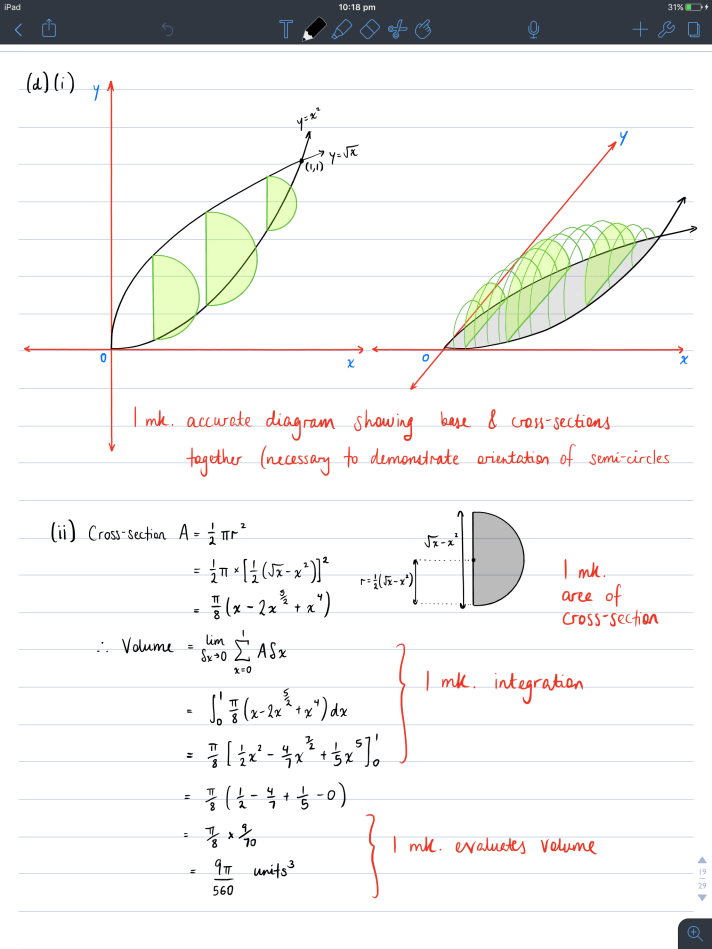 iPad 10:18 pm 31%
T
(d)(i)
y
y=x²
y=√x
(1,1)
y
0
x
0
x
1 mk. accurate diagram showing base & cross-sections
together (necessary to demonstrate orientation of semi-circles
(ii) Cross-section A = ½ πr²
= ½π × [½(√x - x²)]²
= π/8 (x - 2x^(5/2) + x⁴)
√x - x²
r = ½(√x - x²)
1 mk.
area of
cross-section
∴ Volume = lim δx→0 Σ x=0 1 A δx
= ∫₀¹ π/8 (x - 2x^(5/2) + x⁴) dx
= π/8 [½x² - 4/7 x^(7/2) + 1/5 x⁵]₀¹
1 mk. integration
= π/8 (½ - 4/7 + 1/5 - 0)
= π/8 × 9/70
= 9π/560 units³
1 mk. evaluates volume
19
29